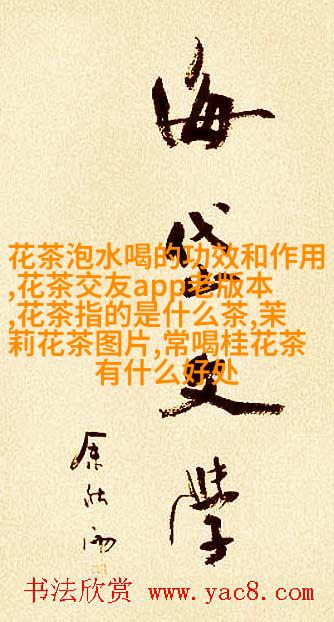 海岱文学
花茶泡水喝的功效和作用
,花茶交友app老版本
,花茶指的是什么茶,茉
莉花茶图片,常喝桂花茶
有什么好处
书法欣赏 www.yac8.com